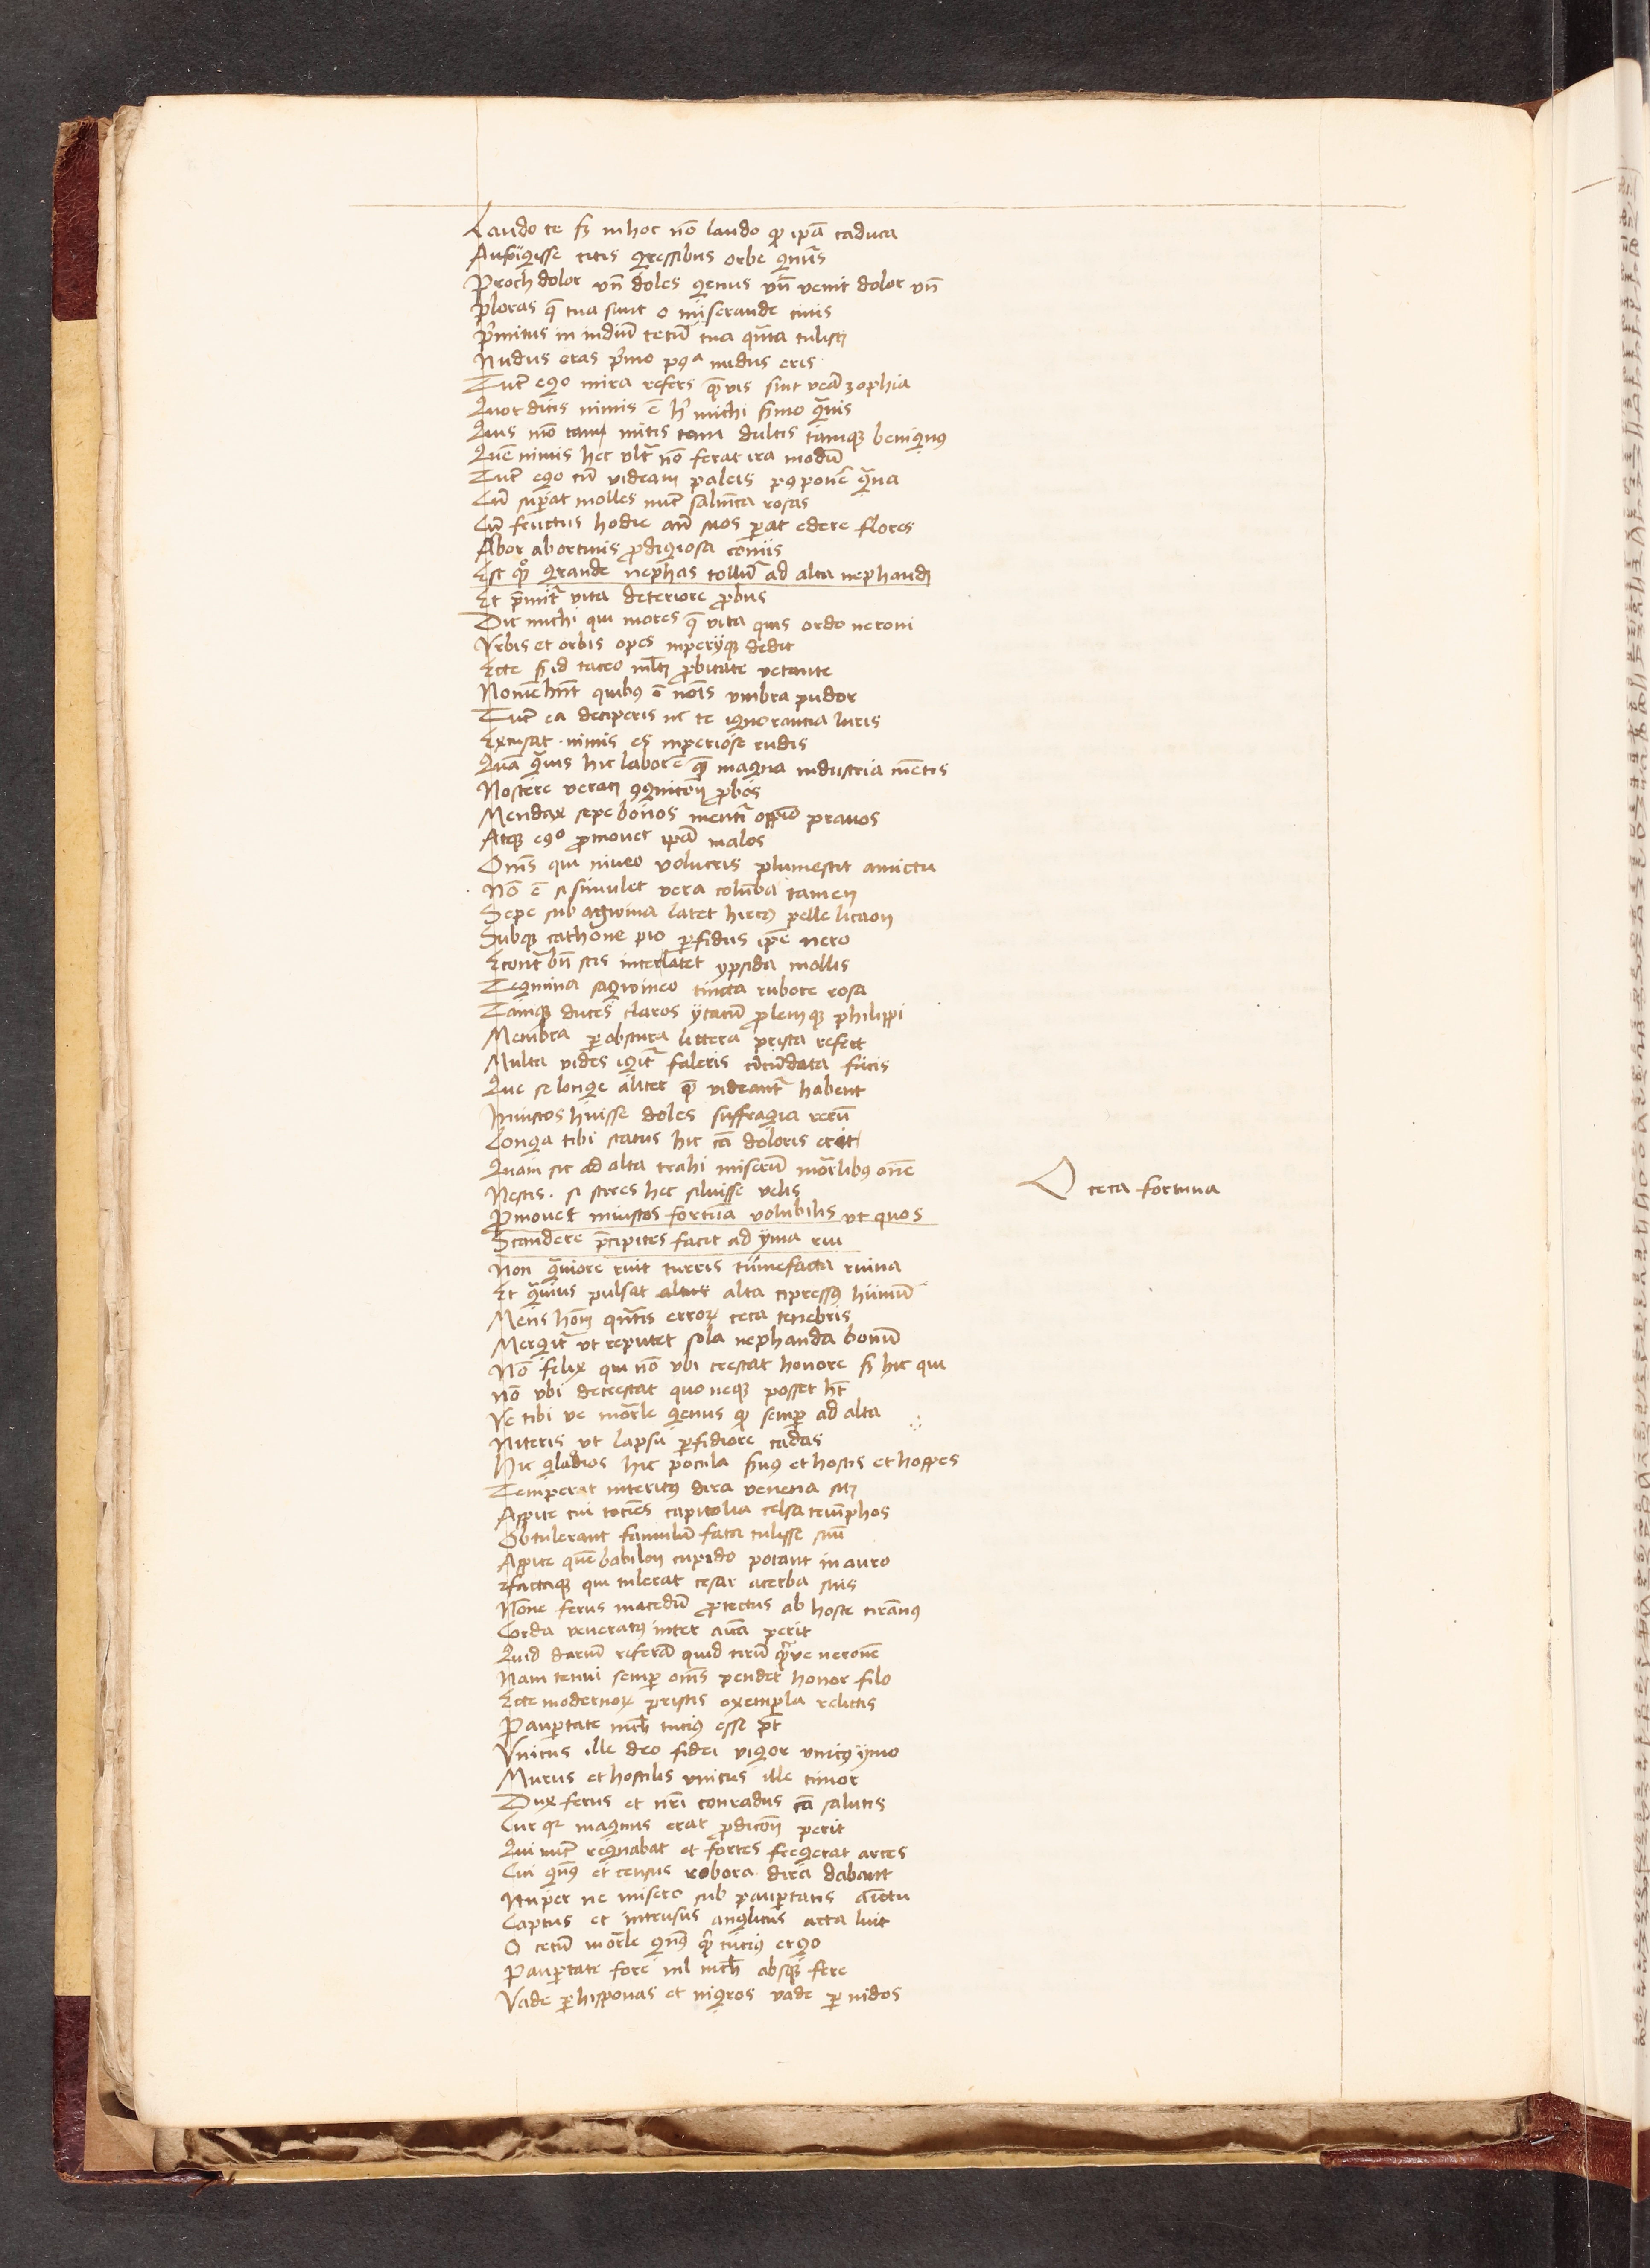 Laudo te sz in hoc nō laudo qp ipā caduca
Aufugisse citis gressibus orbe
Proch dolor vn̄ doles genus vn̄ venit dolor vn̄
ploras q̄ tua sunt o miserande civis
Nudus eras pͥmo nudus eris
Tūc ego mira refers q̄vis sint vera zophia
Quor dicis nimis ē michi sͣmo gͣuis
Quis nō tam mitis tam dulcis tamque benignꝰ
Quē nimis hec vltͣ nō ferat ira modū
Tūc ego cū videam paleis pꝯponē gͣna
Cū supat molles nūc saliunca rosas
Cū fructus hodie an̄ suos parat edere flores
Abor abortiuis prodigiosa comis
Est qͦꝫ grande nephas tollūt ad alta nephandi
Et pͥmitͬ vita deteriore probus
Dic michi qui mores q̄ vita quis ordo neroni
Vrbis et orbis opes imperiique dedit
Ecce sͣ id taceo probitate vetante
Nomē hn̄t quibꝰ ē nois vmbra pudor
Tūc ea deciperis nec te ignorantia iuris
Excusat. nimis es imperiose rudis
Quā gͣuis hic labor ē magna industria mētis
Noscere probos
Mendax sepe bonos mentitͬ opinio prauos
Atque ego promouet ipā malos
Omīs qui niueo volucris plumescit amictu
Nō ē si simulet vera columba tamen
Sepe sub agwina latet hircꝰ pelle licaon
Subque cathone pio perfidus ipē nero
Econtͣ bn̄ scis inter latet ypsida mollis
Tegmina sagwineo tincta rubore rosa
Tamque duces claros ytacum prolemque philippi
Membra per obscura littera prisca refert
Multa vides igitͬ faleris circūdata fucis
Que se longe aliter videantͬ habent
Iniustos hūisse doles suffragia rerū
Longa tibi status hic cā doloris erit
Quam sit ad alta trahi miserū mortalibꝰ omē
Nescis. si scires hec siluisse velis
Promouet iniustos fortūa volubilis vt quos
Scandere pͥcipites facit ad yma rui
Non gͣuiore ruit turris tumefacta ruina
Et gͣuius pulsat altus alta cipressꝰ humū
Mens hoīm qntis errorꝝ ceca tenebris
Mergitͬ vt reputet sola nephanda bonū
Nō felix qui nō vbi crescat honore sͣ hic qui
nō vbi decrescat quo neque posset hꝫ
Ve tibi ve mortale genus qp semper ad alta
Niteris vt lapsu perfidiore cadas
Hic gladios hic pocula et hostis et hospes
Temperat interitꝰ dira venena siti
Aspice cui tociens capitolia celsa triūphos
Obtulerant famulum fata tulisse suū
Aspice quē babilon cupido potant in auro
factaque qui tulerat cesar acerba suis
Nōne ferus macedum protectus ab hoste tirānꝰ
Corda veneratꝰ inter perit
Quid darium referā quid cirū nerone
Nam tenui semper omīs pendet honor filo
Ecce modernoꝝ priscis exempla relictis
Paupertate nich̄ tuciꝰ esse pt
Vnicus ille deo fidei vigor vnicꝰ ymo
Murus et hostilis vnicus ille timor
Dux ferus et nr̄i conradus cā salutis
Cur qꝛ magnus erat perit
Qui nūc regnabat et fortes fregerat arces
Cui gn̄ꝰ et census robora dira dabant
Nuper ne misero sub paupertatis amictu
Captus et intrusus anglicus arta luit
O cecū mortale gn̄ꝰ tuciꝰ ergo
Paupertate fore nil nich̄ absque fere
Vade per hisponas et nigros vade per nidos
O ceca fortuna